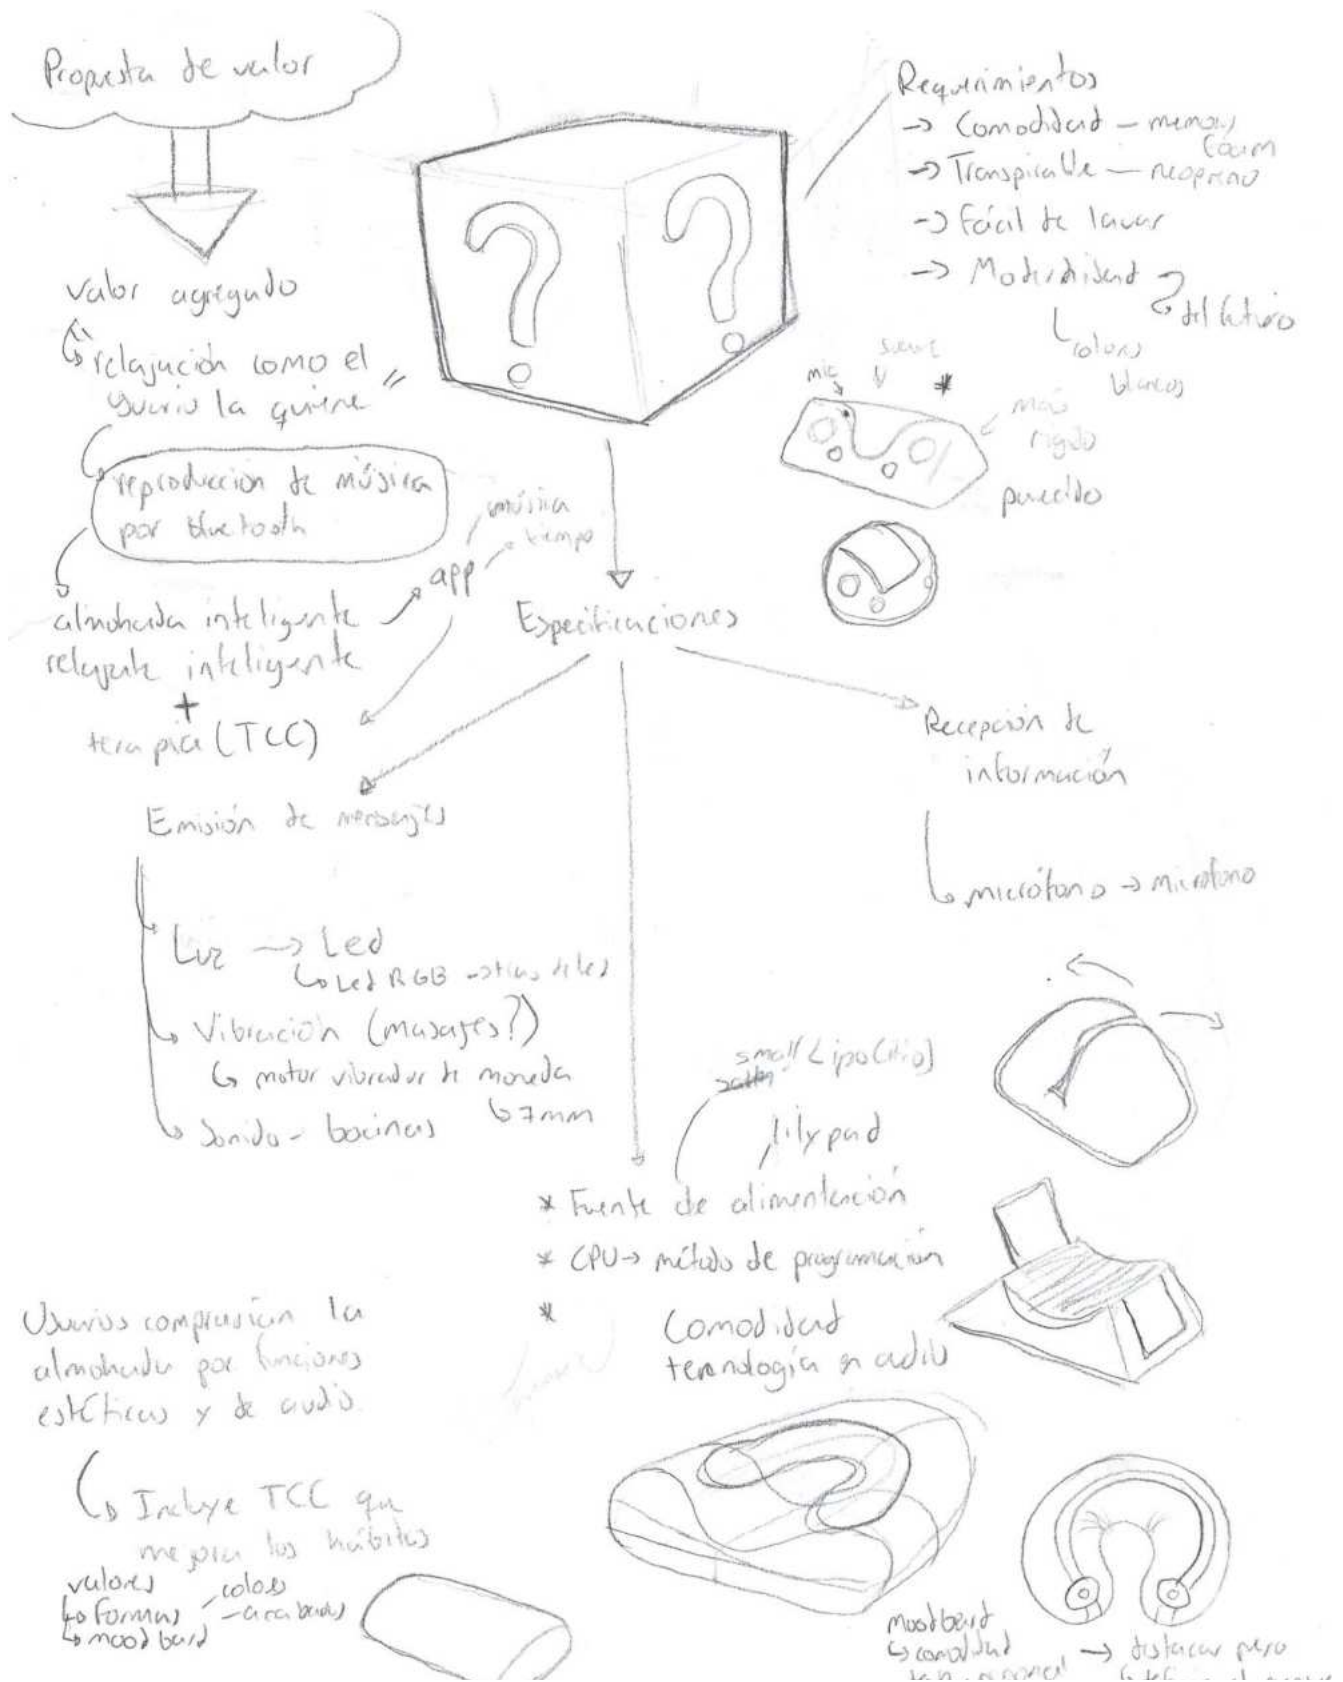 Propuesta de valor
valor agregado
relajación como el
usuario la quiere
reproducción de música
por bluetooth
almohada inteligente
relajante inteligente
+
terapia (TCC)
app
música
tiempo
Requerimientos
-> Comodidad - memory
foam
-> Transpirable - neopreno
-> Fácil de lavar
-> Modernidad
del futuro
colores
blancos
mic
suave
*
más
rígido
parecido
Especificaciones
Emisión de mensajes
Luz -> Led
Led RGB -> tiras de led
Vibración (masajes?)
motor vibrador de moneda
7mm
Sonido - bocinas
Recepción de
información
micrófono -> micrófono
small Lipo (litio)
lilypad
* Fuente de alimentación
* CPU -> método de programación
*
Comodidad
tecnología en audio
Usuarios comprarían la
almohada por funciones
estéticas y de audio
Incluye TCC que
mejora los hábitos
valores
formas - colores
- acabados
mood board
moodboard
comodidad
-> destacar pero